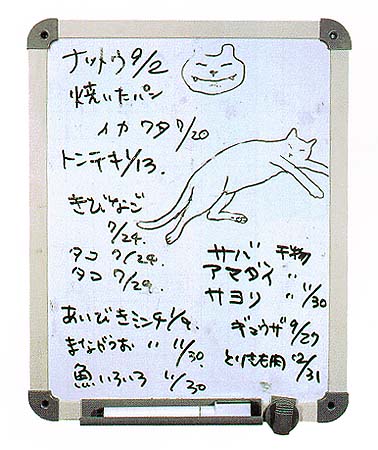 ナットウ 9/2
焼いたパン
イカワタ 9/20
トンテキ 1/13.
きびなご
7/24.
タコ 7/24.
タコ 7/29.
あいびきミンチ 1/9.
まながつお 11/30.
魚いろいろ 11/30
サバ 干物
アマダイ 〃
サヨリ 〃 11/30
ギョウザ 9/27
とりもも肉 12/31